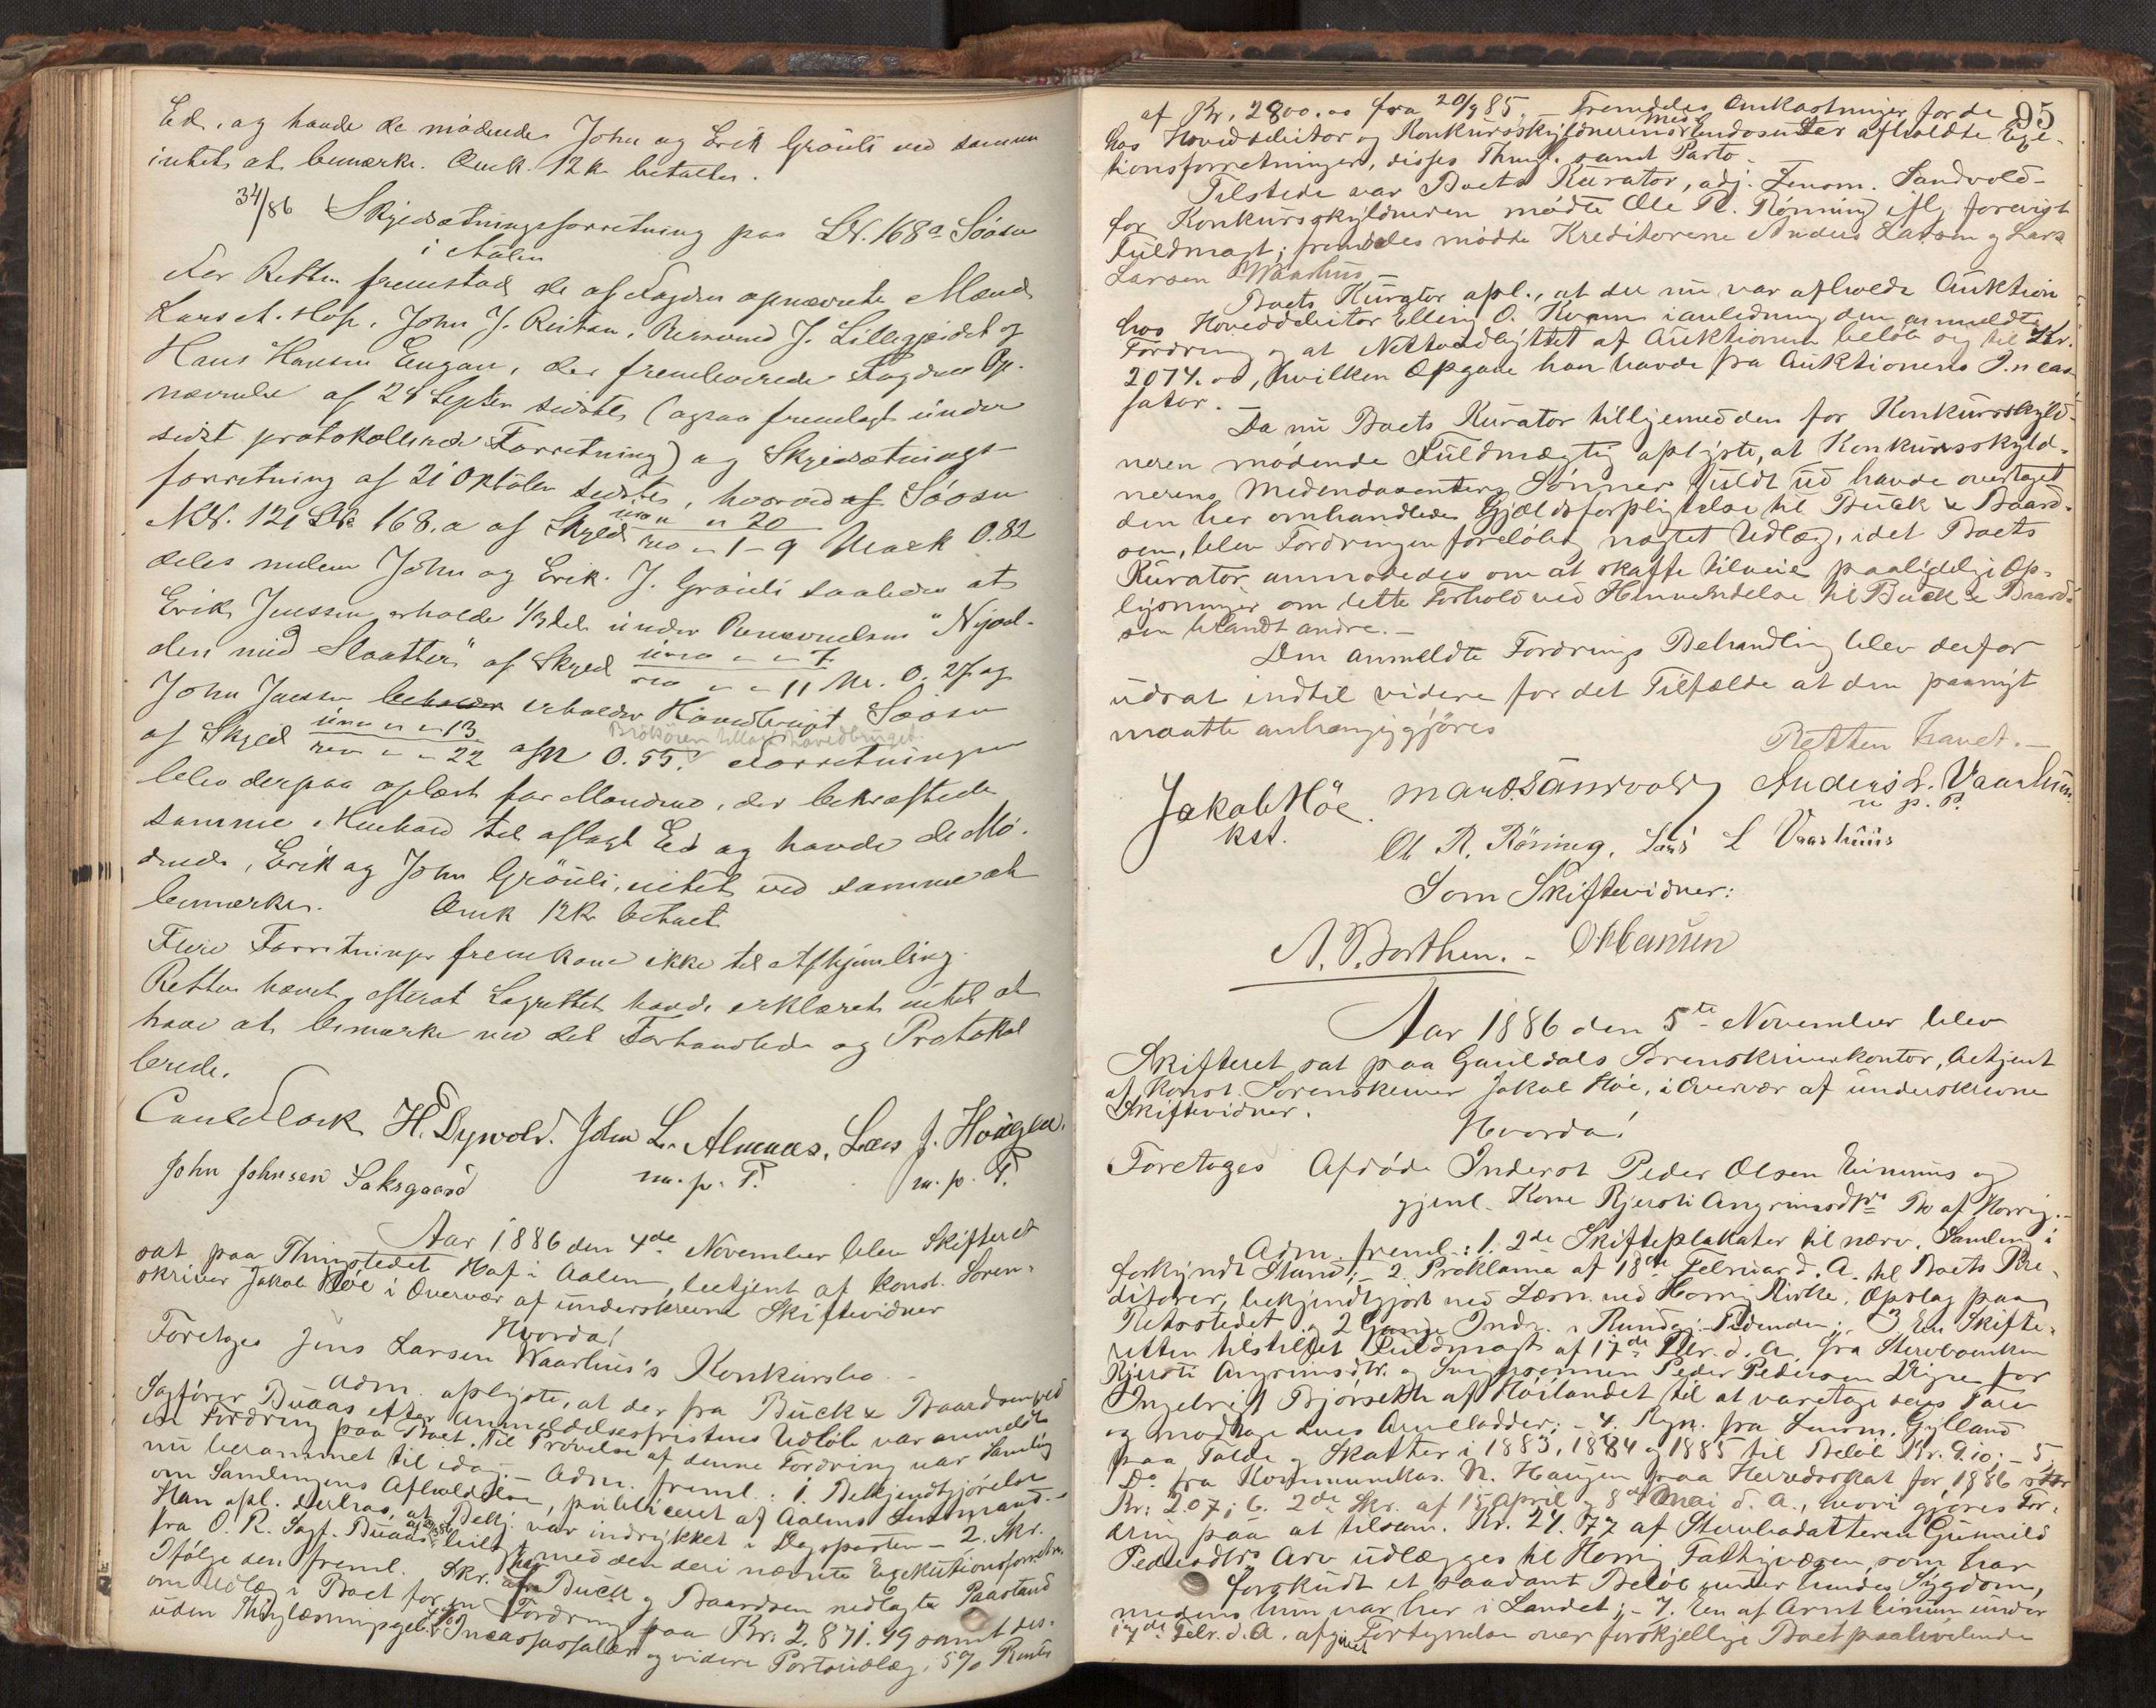 Ed, og havde de mødende John og Erik Grøuli ved samme
intet at bemærke. Omk. 12 kr betaltes.
34/86 Skyldsætningsforretning paa LN. 168a Søosen
i Aalen
For Retten fremstod de af Fogden opnævnte Mænd
Lars A. Hof, John J. Reitan, J. Lillegjeidet og
Hans Hansen Engan, der fremleverede Fogdens Op-
nævnelse af 24 Septbr sidstl. (ogsaa fremlagt under
sidst protokollerede Forretning) og Skyldsætnings-
forretning af 21 Oktober sidstl., hvorved af Søosen
MN. 121 LN 168.a af Skyld urev " " 20
rev " 1 - 9 Mark 0.82
deles mellem John og Erik J. Grøuli saaledes at
Erik Jenssen erholder 1/3 del under Benævnelsen "Nyjod-
den med Slaatten" af Skyld urev " " 7
rev " " 11 Mr. 0.27 og
John Jenssen beholder erholder Hovedbruget Søosen
af Skyld urev " " 13
rev " " 22 af M 0.55. Forretningen
Brøkøren tillagt Hovedbruget.
blev derpaa oplæst for Mændene, der bekræftede
samme i Henhold til aflagt Ed og havde de Mø-
dende, Erik og John Grøuli, intet ved samme at
bemærke. Omk 12 Kr betalt
Flere Forretninger fremkom ikke til Afhjemling.
Retten hævet, efterat Lagrettet havde erklæret intet at
have at bemærke ved det Forhandlede og Protokol
lerede.
H. Dyvold. John L. Almaas, Lars J. Hougen.
John Johnsen Saksgaard m. p. P. m. p. P.
Aar 1886 den 4de November blev Skifteret
sat paa Thingstedet Hof i Aalen, betjent af konst. Soren-
skriver Jakob Høe i Overvær af underskrevne Skiftevidner
Hvorda!
Foretages Jens Larsen Waarhus's Konkursbo.
Adm. oplyste, at der fra Buck & Baardsen ved
Sagfører Buaas efter Anmeldelsesfristens Udløb var anmeldt
en Fordring paa Boet. Til Prøvelse af denne Fordring var Samling
nu berammet til idag. - Adm. freml.: 1. Bekjendtgjørelse
om Samlingens Afholdelse, publiceret af Aalens Lensmand. -
Han opl. derhos, at Bekj. var indrykket i Dagsposten - 2. Skr.
fra O. R. Sagf. Buaas bilagt med den deri nævnte Exekutionsforretn.
Ifølge den freml. Skr. har Buck og Baardsen nedlagte Paastand
om Udlæg i Boet for en Fordring paa Kr. 2.871.99 samt des-
uden Thinglæsningsgeb., Incassosalær og videre Portoudlæg, 5% Renter
95
af Kr. 2800.00 fra 20/9 85. Fremdeles Omkostninger for de
hos Hoveddebitor og Konkursskyldnerens Medendosenter afholdte Exe-
tionsforretninger, disses Thingl. samt Porto.
Tilstede var Boets Kurator, adj. Lensm. Sandvold -
for Konkursskyldneren mødte Ole R. Rønning iflg. forevist
Fuldmagt; fremdeles mødte Kreditorerne Anders Larsen og Lars
Larsen Waarhus. -
Boets Kurator opl., at der nu var afholdt Auktion
hos Hoveddebitor Elling O. Kvam i anledning den anmeldte
Fordring og at Nettoudbyttet af Auktionen beløb sig til Kr.
2074.00, hvilken Opgave han havde fra Auktionens Incas-
sator. -
Da nu Boets Kurator tilligemed den for Konkursskyld-
neren mødende Fuldmægtig oplyste, at Konkursskyld-
nerens Medendosenters Sønner fuldt ud havde overtaget
den her omhandlede Gjældsforpligtelse til Buck & Baard-
sen, blev Fordringen foreløbig nægtet Udlæg, idet Boets
Kurator anmodedes om at skaffe tilveie paalidelige Op-
lysninger om dette Forhold ved Henvendelse til Buck & Baard-
sen blandt andre. -
Den anmeldte Fordrings Behandling blev derfor
udsat indtil videre for det Tilfælde at den paanyt
maatte anhængiggjøres
Retten hævet. -
Jakob Høe. Mart. Sandvold Anders L. Vaarhus
kst. m. p. P.
Ol R. Röning. Lars L Vaarhuus
Som Skiftevidner:
A. Borthen. - O Hansen
Aar 1886 den 5te November blev
Skifteret sat paa Gauldals Sorenskriverkontor, betjent
af konst. Sorenskriver Jakob Høe, i Overvær af underskrevne
Skiftevidner.
Hvorda!
Foretoges Afdøde Inderst Peder Olsen Einums og
gjenl. Kone Kjersti Angrimsdtrs Bo af Horrig. -
Adm. freml.: 1. 2de Skifteplakater til nærv. Samling i
forkyndt Stand; - 2. Proklama af 18de Februar d. A. til Boets Kre-
ditorer, bekjendtgjort ved Læsn. ved Horrig Kirke, Opslag paa
Retsstedet og 2 Gange Indr. i Kundgj. Tidende; 3. En Skifte-
retten tilstillet Fuldmagt af 17de Febr. d. A. fra Stervboenken
Kjersti Angrimsdtr. og Svigersønnen Peder Pedersen Digre for
Ingebrigt Bjørseth af Høilandet til at varetage deres Tarv
og modtage deres Arvelodder; - 4. Rgn. fra Lensm. Gylland
paa Tolde og Skatter i 1883, 1884 og 1885 til Beløb Kr. 9.10; - 5,
Do fra Kommunekas. N. Haugen paa Herredsskat for 1886 stor
Kr: 2.07; 6. 2de Skr. af 15 April og 8de Mai d. A., hvori gjøres For-
dring paa at tilsam. Kr. 24.77 af Stervbodatteren Gunnild
Pedersdtrs Arv udlægges til Horrig Fattigvæsen, som har
forskudt et saadant Beløb under hendes Sygdom,
medens hun var her i Landet; - 7. En af Arnt Einum under
17de Febr. d. A. afgivet Fortegnelse over forskjellige Boet paahvilende